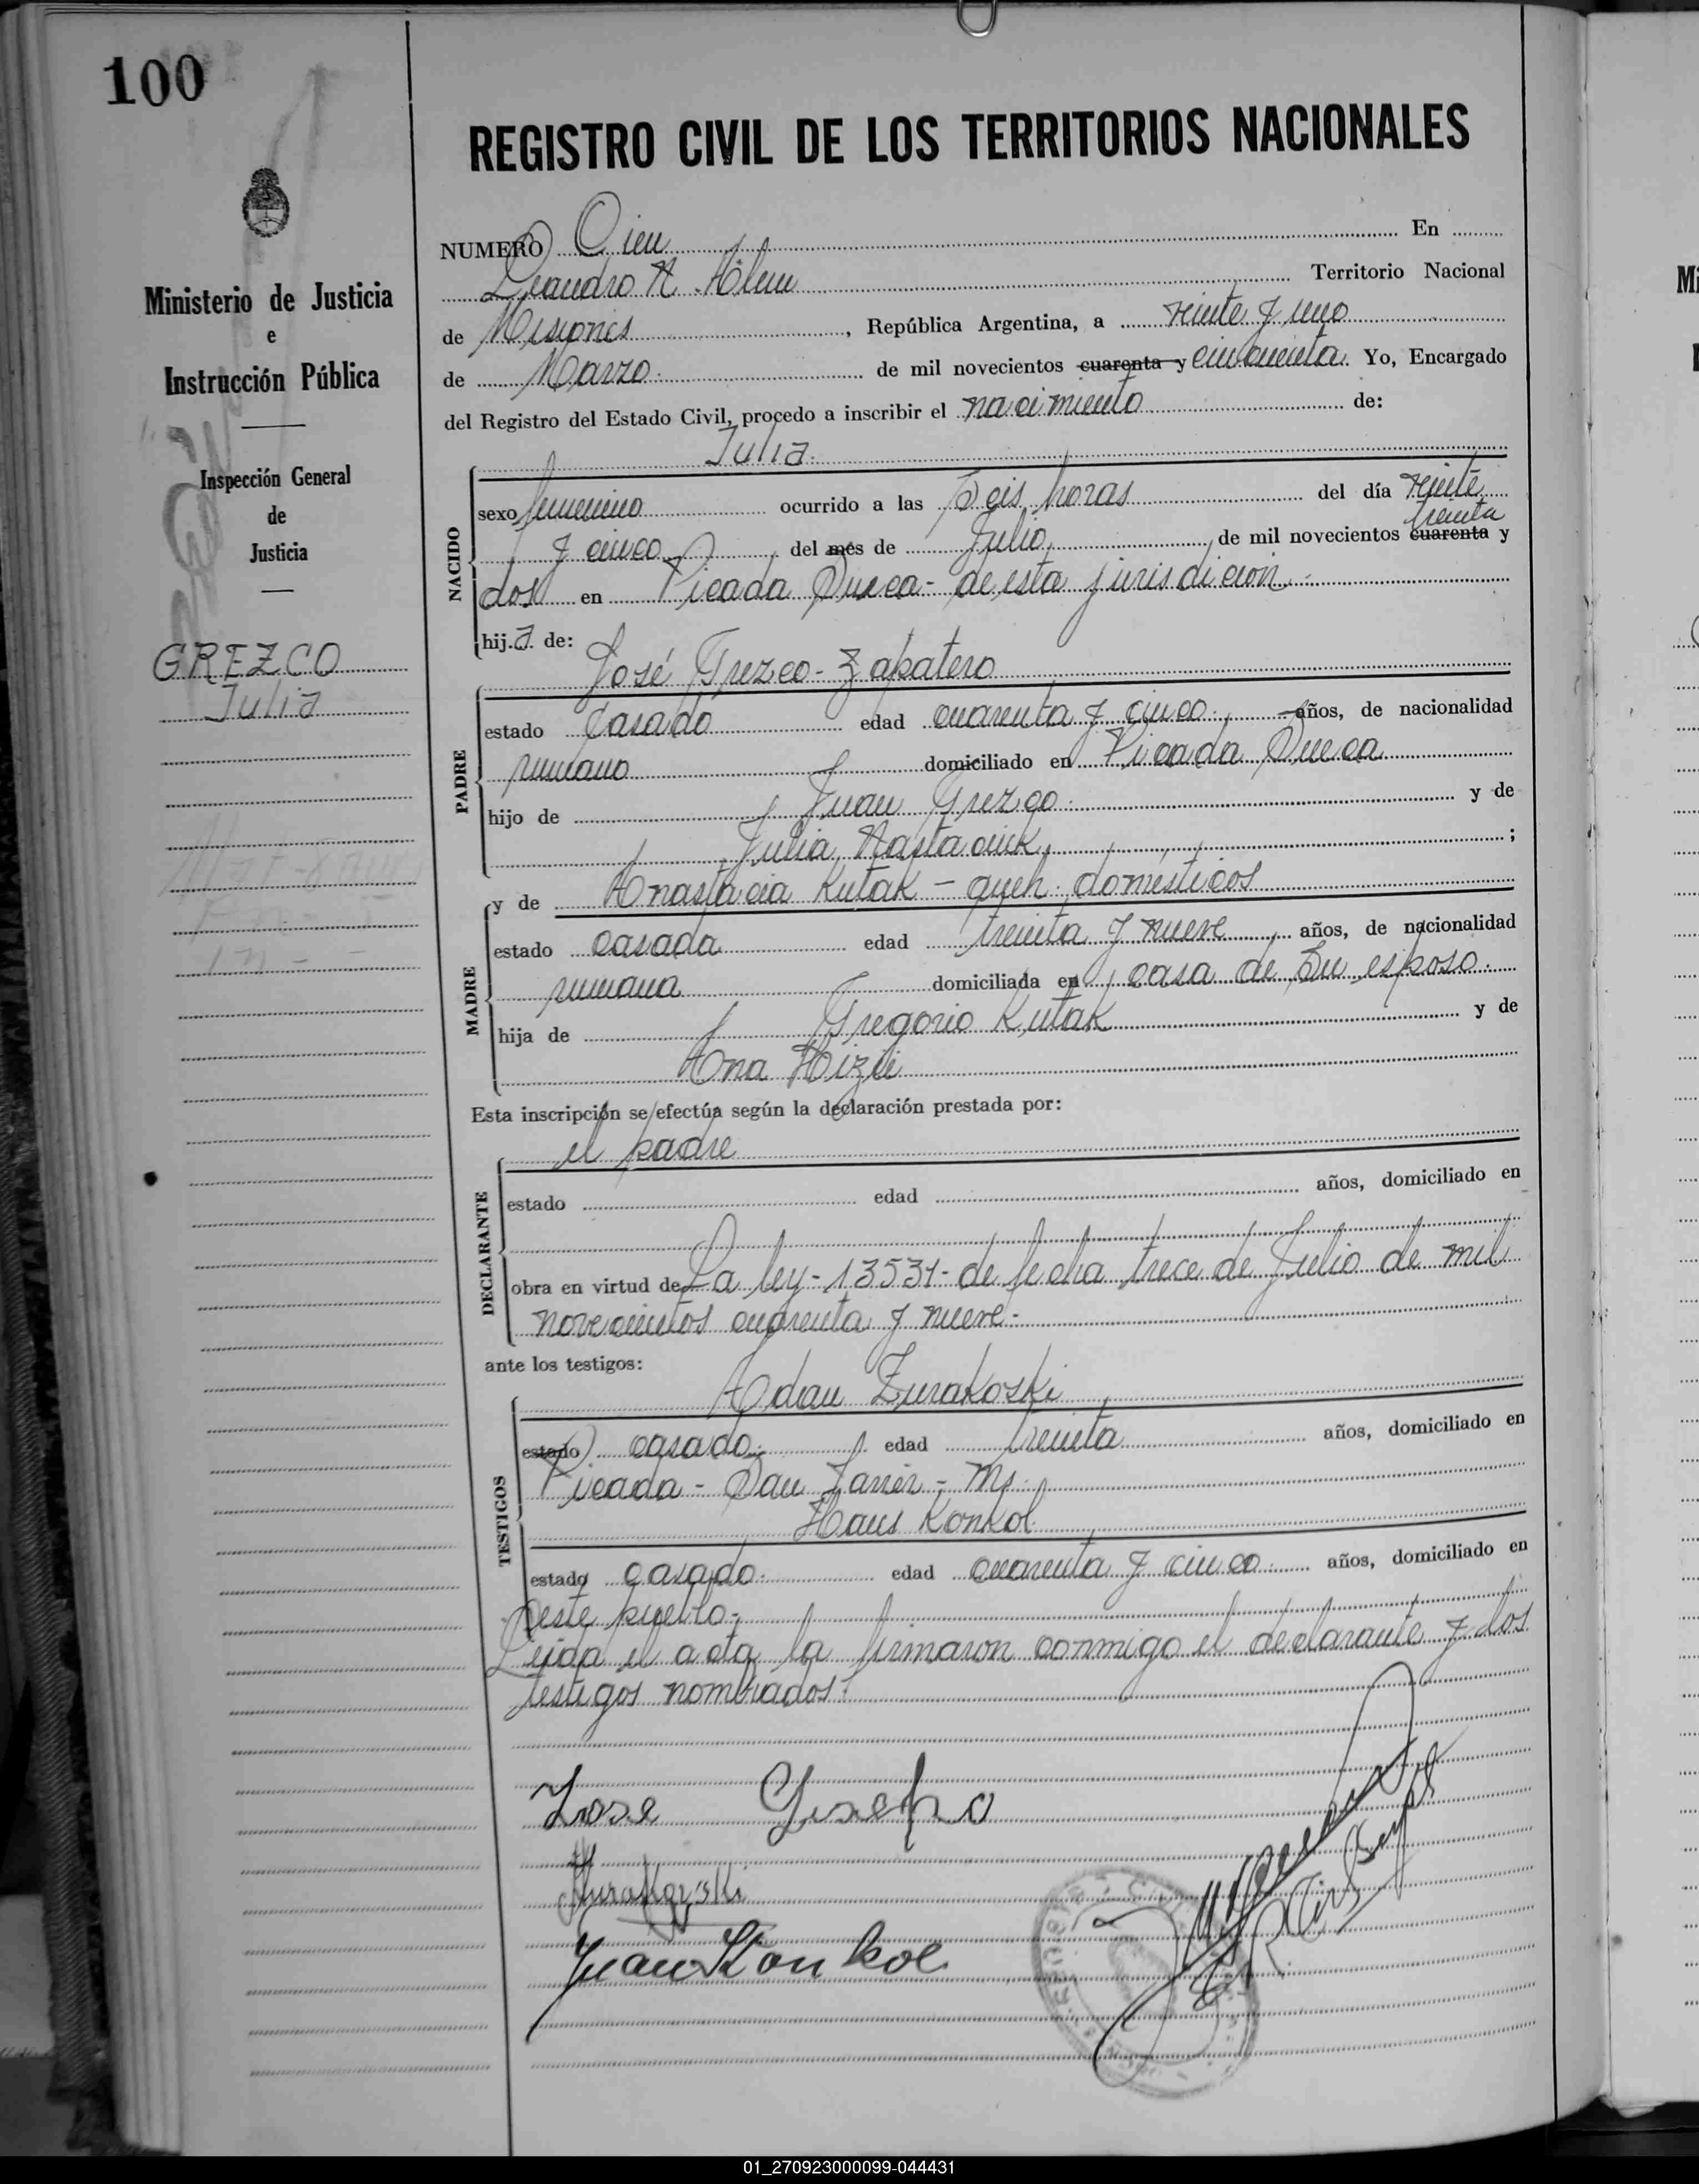 100
REGISTRO CIVIL DE LOS TERRITORIOS NACIONALES
Ministerio de Justicia
e
Instrucción Pública
Inspección General
de
Justicia
GREZCO
Julia
NUMERO Cien En
Leandro N. Alem Territorio Nacional
de Misiones, República Argentina, a veinte y uno
de Marzo. de mil novecientos cuarenta y cincuenta. Yo, Encargado
del Registro del Estado Civil, procedo a inscribir el nacimiento de:
Julia.
NACIDO
sexo femenino ocurrido a las Seis horas del día veinte
y cinco, del mes de Julio, de mil novecientos cuarenta treinta y
dos en Picada Sueca - de esta jurisdicion.-
hij.a de:
José Grezco - Zapatero
PADRE
estado Casado edad cuarenta y cinco años, de nacionalidad
rumano domiciliado en Picada Sueca
hijo de Juan Grezco. y de
Julia Nastacuik ;
MADRE
y de Anastacia Kutak - queh. domésticos
estado casada edad treinta y nueve años, de nacionalidad
rumana domiciliada en casa de Su esposo.
hija de Gregorio Kutak y de
Ana
Esta inscripción se efectúa según la declaración prestada por:
el padre
DECLARANTE
estado edad años, domiciliado en
obra en virtud de La ley - 13531 - de fecha trece de Julio de mil
novecientos cuarenta y nueve.-
ante los testigos:
Adan Zurakoski
TESTIGOS
estado casado. edad treinta años, domiciliado en
Picada - San Javier - Ms.
Hans Konkol
estado casado. edad cuarenta y cinco. años, domiciliado en
este pueblo.-
Leida el acta, la firmaron conmigo el declarante y los
testigos nombrados.-
Juan Konkol
01_270923000099-044431